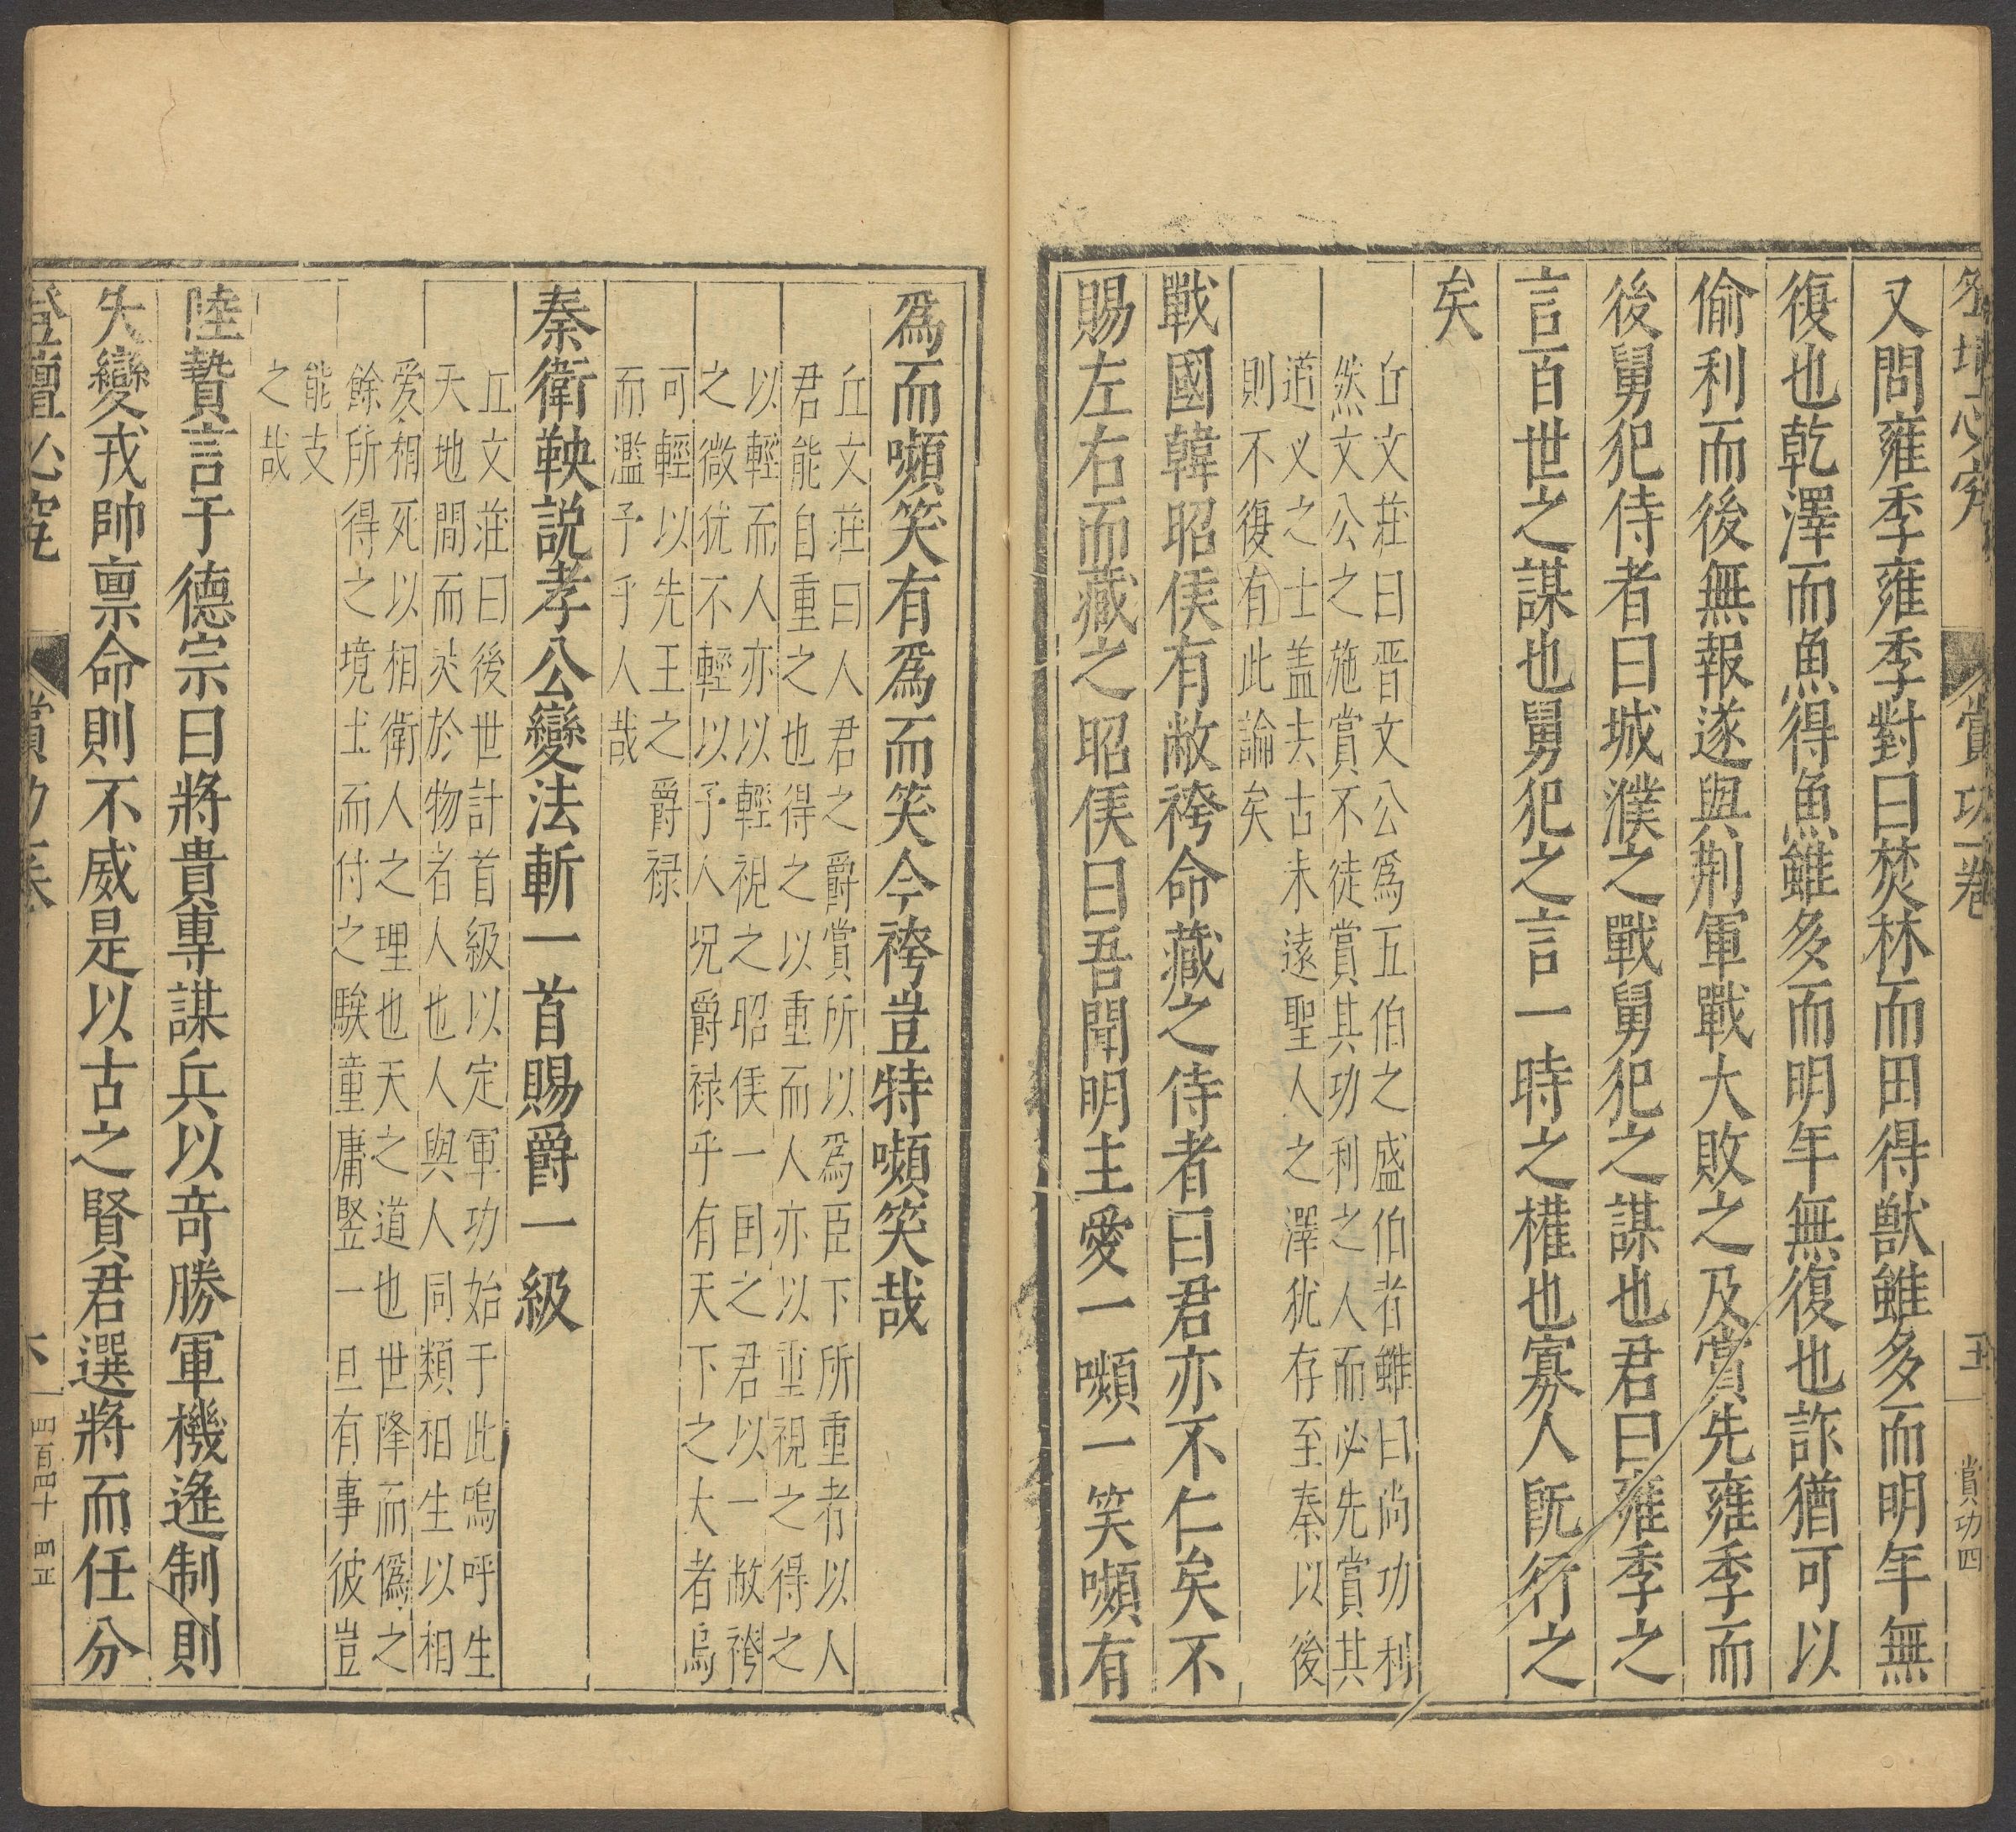 登壇必究
賞功一卷
五
賞功四
又問雍季雍季對曰焚林而田得獸雖多而明年無
復也乾澤而魚得魚雖多而明年無復也詐猶可以
偷利而後無報遂與荆軍戰大敗之及賞先雍季而
後舅犯侍者曰城濮之戰舅犯之謀也君曰雍季之
言百世之謀也舅犯之言一時之權也寡人旣行之
矣
丘文莊曰晋文公爲五伯之盛伯者雖曰尚功利
然文公之施賞不徒賞其功利之人而必先賞其
道义之士盖去古未遠聖人之澤犹存至秦以後
則不復有此論矣
戰國韓昭侯有敝袴命藏之侍者曰君亦不仁矣不
賜左右而藏之昭侯曰吾聞明主愛一嚬一笑嚬有
爲而嚬笑有爲而笑今袴豈特嚬笑哉
丘文莊曰人君之爵賞所以為臣下所重者以人
君能自重之也得之以重而人亦以重視之得之
以輕而人亦以輕視之昭侯一国之君以一敝袴
之微犹不輕以予人况爵禄乎有天下之大者烏
可輕以先王之爵禄
而濫予乎人哉
秦衛鞅説孝公變法斬一首賜爵一級
丘文莊曰後世計首級以定軍功始于此嗚呼生
天地間而灵於物者人也人與人同類相生以相
爱相死以相衛人之理也天之道也世降而僞之
餘所得之境土而付之騃童庸竪一旦有事彼豈
能支
之哉
陸贄言于德宗曰將貴專謀兵以竒勝軍機遙制則
失變戎帥禀命則不威是以古之賢君選將而任分
登壇必究
賞功一卷
六
四百四十